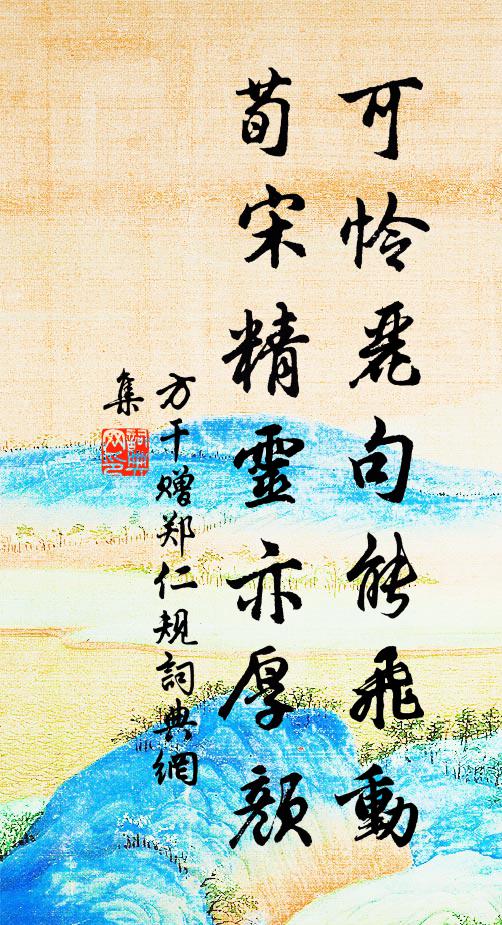 可怜麗句能飛動
荀宋精靈亦厚顏
方干赠郑仁规詞典網
集